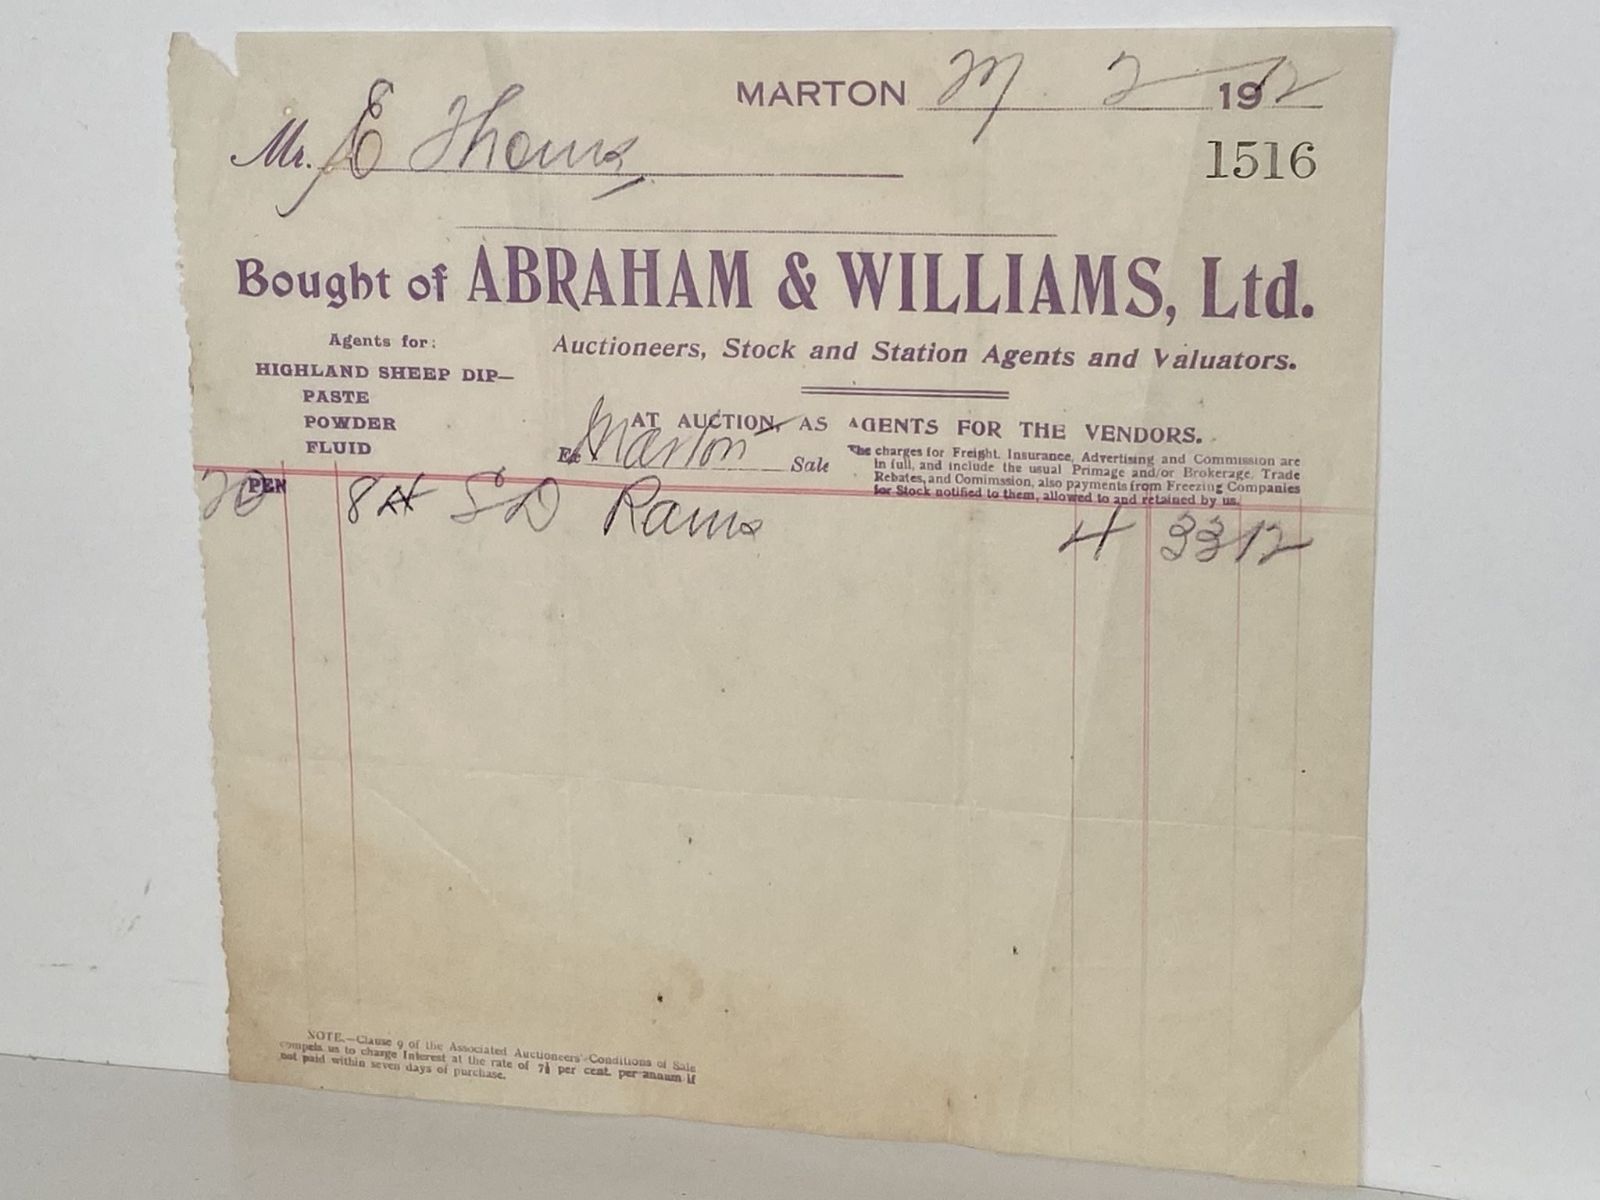 MARTON 27 2 1912
Mr. E Thomas
1516
Bought of ABRAHAM & WILLIAMS, Ltd.
Auctioneers, Stock and Station Agents and Valuators.
Agents for:
HIGHLAND SHEEP DIP—
PASTE
POWDER
FLUID
AT AUCTION, AS AGENTS FOR THE VENDORS.
Ex Marton Sale
The charges for Freight, Insurance, Advertising and Commission are
in full, and include the usual Primage and/or Brokerage, Trade
Rebates, and Comimssion, also payments from Freezing Companies
for Stock notified to them, allowed to and retained by us.
PEN
20 84 SD Rams 4 33 12
NOTE.—Clause 9 of the Associated Auctioneers' Conditions of Sale
compels us to charge Interest at the rate of 7½ per cent. per annum if
not paid within seven days of purchase.